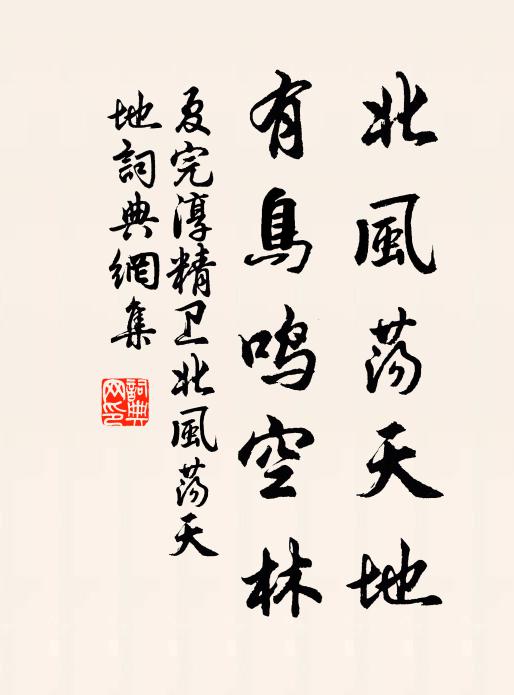 北風荡天地
有鳥鸣空林
夏完淳精卫北風荡天
地詞典網集
詞典
网印